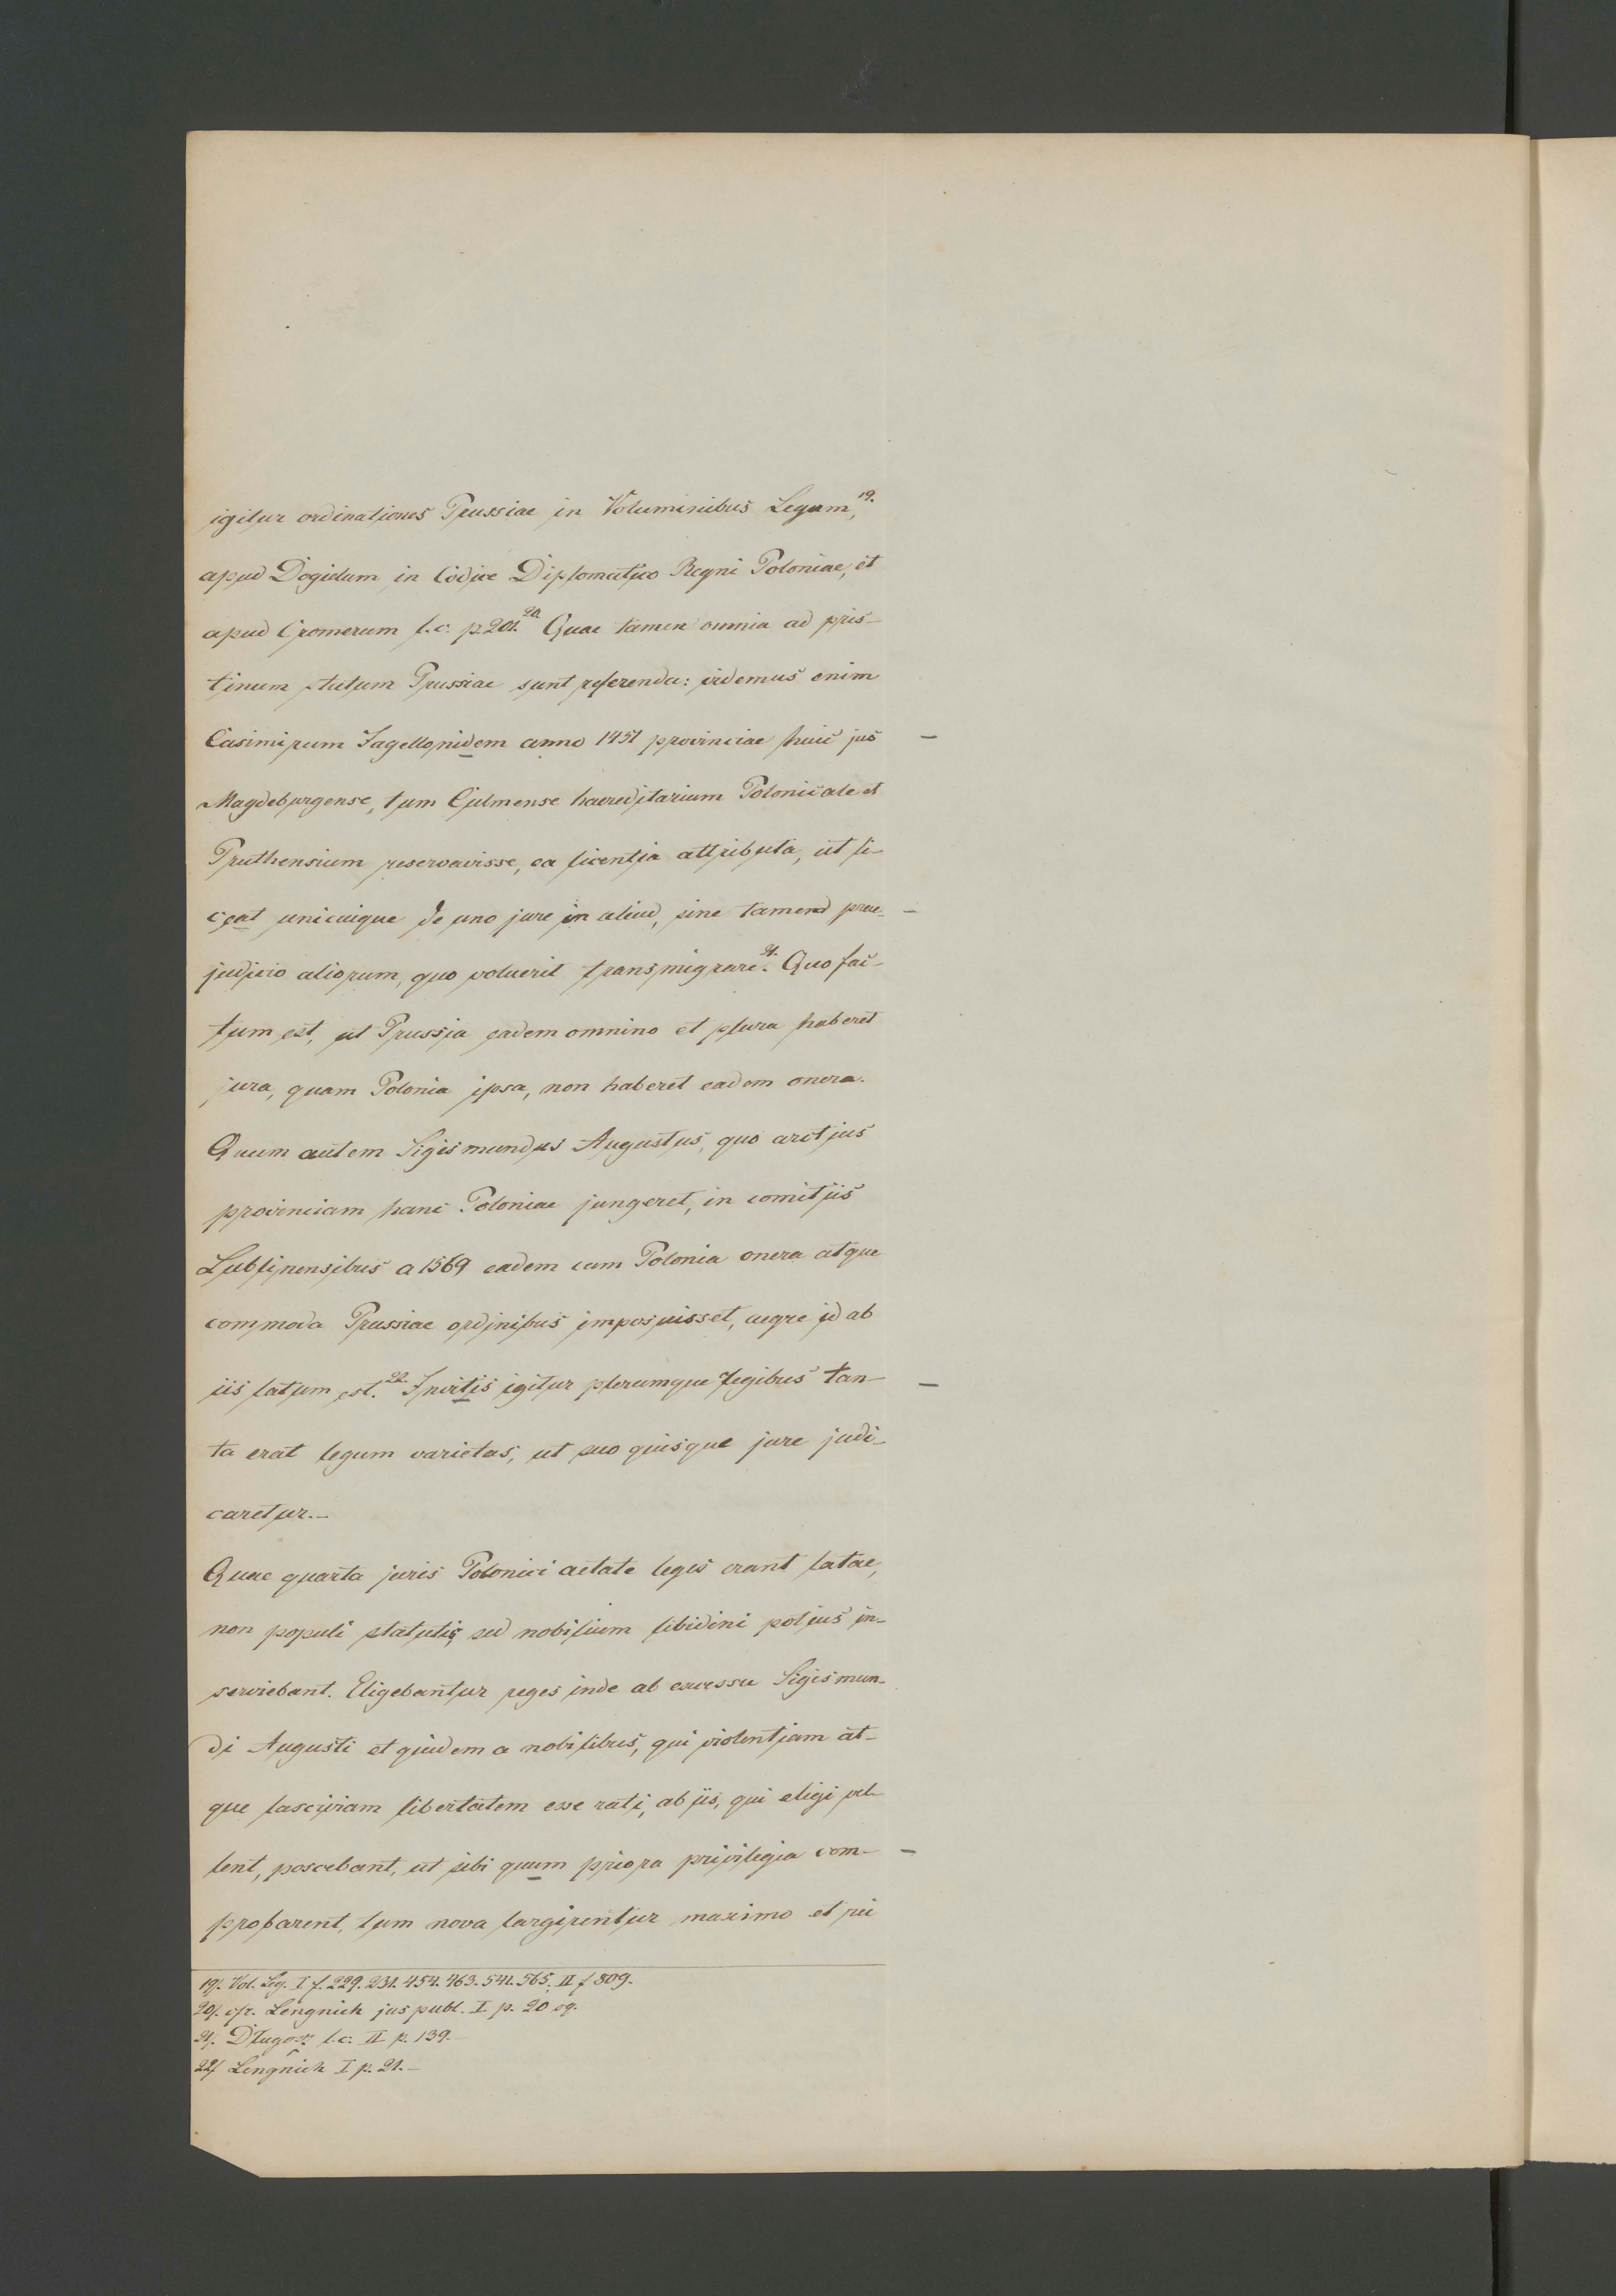 igitur ordinationes Prussiae in Voluminibus Legum,¹⁹·
apud Dogielum in Codice Diplomatico Regni Poloniae, et
apud Cromerum l. c. p. 201.²⁰· Quae tamen omnia ad pris-
tinum statum Prussiae sunt referenda: videmus enim
Casimirum Jagellonidem anno 1451 provinciae huic jus –
Magdeburgense, tum Culmense haereditarium Polonicale et
Pruthensium reservavisse, ea licentia attributa, ut li-
ceat unicuique de uno jure in aliud, sine tamend prae- –
judicio aliorum, quo voluerit transmigrare²¹·. Quo fac-
tum est, ut Prussia eadem omnino et plura haberet
jura, quam Polonia ipsa, non haberet eadem onera.
Quum autem Sigismundus Augustus, quo arctius
provinciam hanc Poloniae jungeret, in comitiis
Lublinensibus a 1569 eadem cum Polonia onera atque
commoda Prussiae ordinibus imposuisset, aegre id ab
iis latum est.²²· Invitis igitur plerumque regibus tan- –
ta erat legum varietas, ut suo quisque jure judi-
caretur.–
Quae quarta juris Polonici aetate leges erant latae,
non populi statutis sed nobilium libidini potius in-
serviebant. Eligebantur reges inde ab excessu Sigismun-
di Augusti et quidem a nobilibus, qui violentiam at-
que lasciviam libertatem esse rati, ab iis, qui eligi vel-
lent, poscebant, ut sibi quum priora privilegia com- –
probarent, tum nova largirentur maximo et rei
19/. Vol. Leg. I f. 229. 231. 454. 463. 541. 565, II f 809.
20/. cfr. Lengnich jus publ. I p. 20 sq.
21/. Długosz l. c. II p. 139.–
22/ Lengnich I p. 21.–